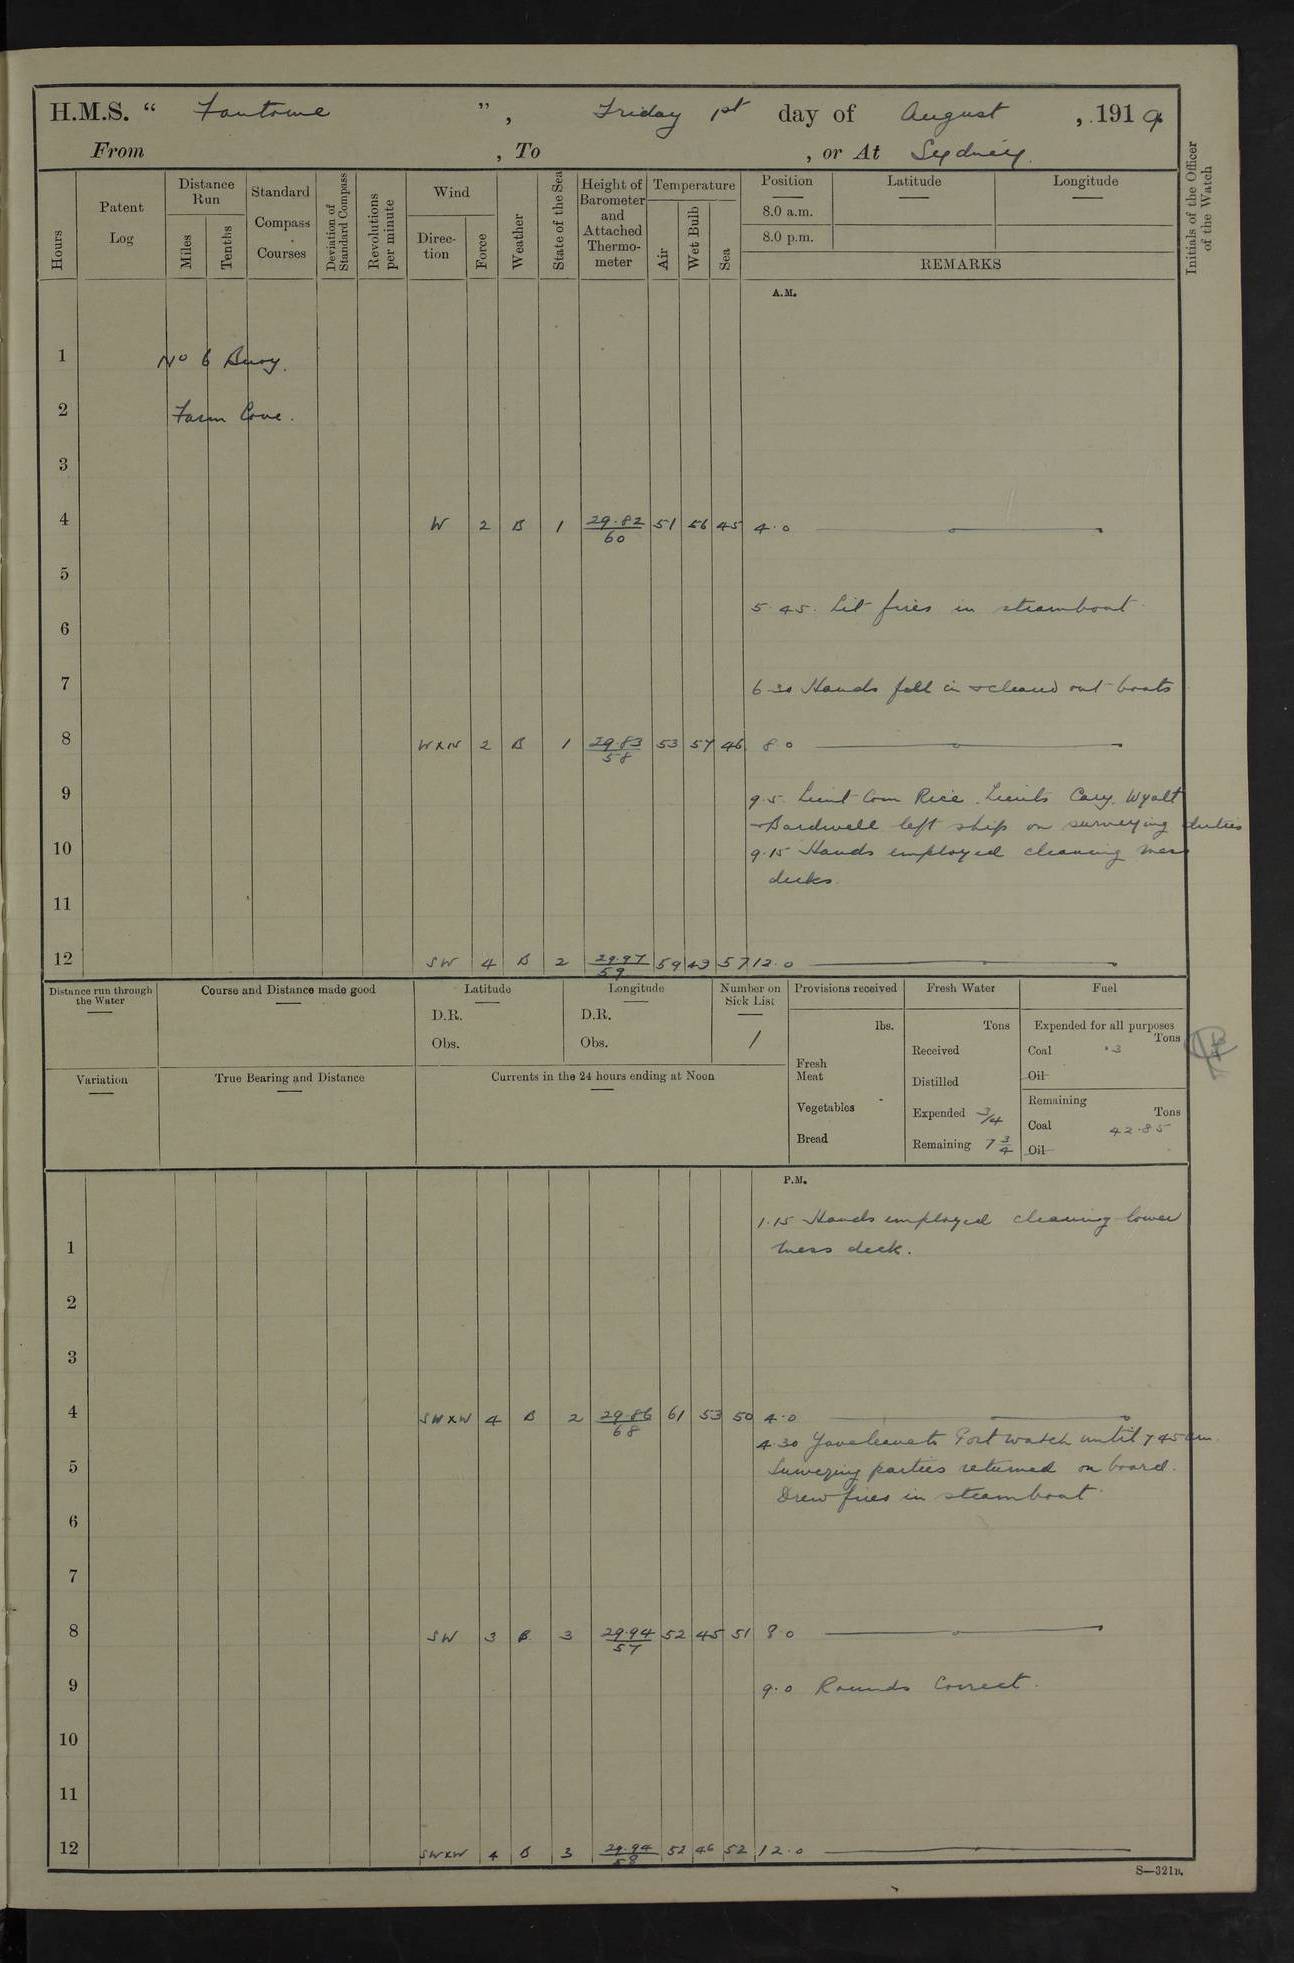 H.M.S. “ Fantome ” , Friday 1st day of August , 1919
From , To , or At Sydney.
Hours
Patent Log
Distance Run
Miles
Tenths
Standard Compass Courses
Deviation of Standard Compass
Revolutions per minute
Wind
Direc-tion
Force
Weather
State of the Sea
Height of Barometer and Attached Thermo-meter
Temperature
Air
Wet Bulb
Sea
Position
8.0 a.m.
8.0 p.m.
Latitude
Longitude
REMARKS
Initials of the Officer of the Watch
A.M.
1 No 6 Buoy.
2 Farm Cove.
3
4 W 2 B 1 29.82/60 51 56 45 4.0
5
5.45. Lit fires in steamboat
6
7 6.30 Hands fell in & cleaned out boats
8 WxN 2 B 1 29.83/58 53 57 46 8.0
9 9.5. Lieut Com Rice. Lieuts Cary. Wyatt
& Bardwell left ship on surveying duties
10 9.15 Hands employed cleaning mess
decks.
11
12 SW 4 B 2 29.97/59 59 49 57 12.0
Distance run through the Water
Course and Distance made good
Latitude
D.R.
Obs.
Longitude
D.R.
Obs.
Number on Sick List
1
Provisions received
lbs.
Fresh Meat
Vegetables
Bread
Fresh Water
Tons
Received
Distilled
Expended 3/4
Remaining 7 3/4
Fuel
Expended for all purposes
Tons
Coal .3
Oil
Remaining
Tons
Coal 42.85
Oil
Variation
True Bearing and Distance
Currents in the 24 hours ending at Noon
P.M.
1.15 Hands employed cleaning lower
1 mess deck.
2
3
4 SWxW 4 B 2 29.86/68 61 53 50 4.0
4.30 Gave leave to Port watch until 7 45 am.
5 Surveying parties returned on board.
Drew fires in steamboat
6
7
8 SW 3 B 3 29.94/57 52 45 51 8.0
9 9.0 Rounds Correct.
10
11
12 SWxW 4 B 3 29.94/58 52 46 52 12.0
S—321B.